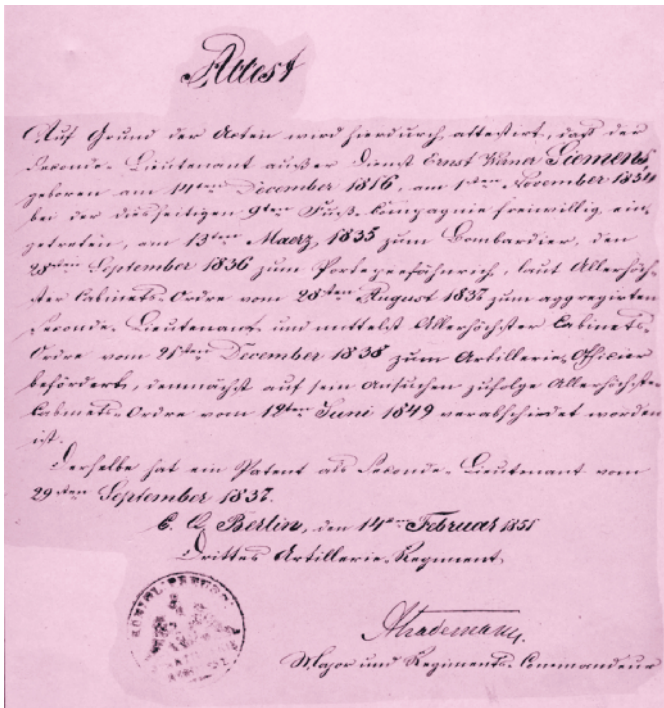 Attest
Auf Grund der Acten wird hierdurch attestirt, daß der
Seconde-Lieutenant außer Dienst Ernst Werner Siemens,
geboren am 14ten December 1816, am 1sten November 1834
bei der diesseitigen 9ten Fuß-Compagnie freiwillig ein-
getreten, am 13ten Maerz 1835 zum Bombardier, den
September 1836 zum Portepeefähnrich, laut Allerhöch-
ster Cabinets-Ordre vom 28sten August 1837 zum aggregirten
Seconde-Lieutenant und mittelst Allerhöchster Cabinets-
Ordre vom December 1838 zum Artillerie-Officier
befördert, demnächst auf sein Ansuchen zufolge Allerhöchster
Cabinets-Ordre vom 12ten Juni 1849 verabschiedet worden
ist.
Derselbe hat ein Patent als Seconde-Lieutenant vom
29sten September 1837.
C. Q. Berlin, den 14ten Februar 1851
Drittes Artillerie-Regiment
KÖNIGL. PREUSS.
Major und Regiments-Commandeur